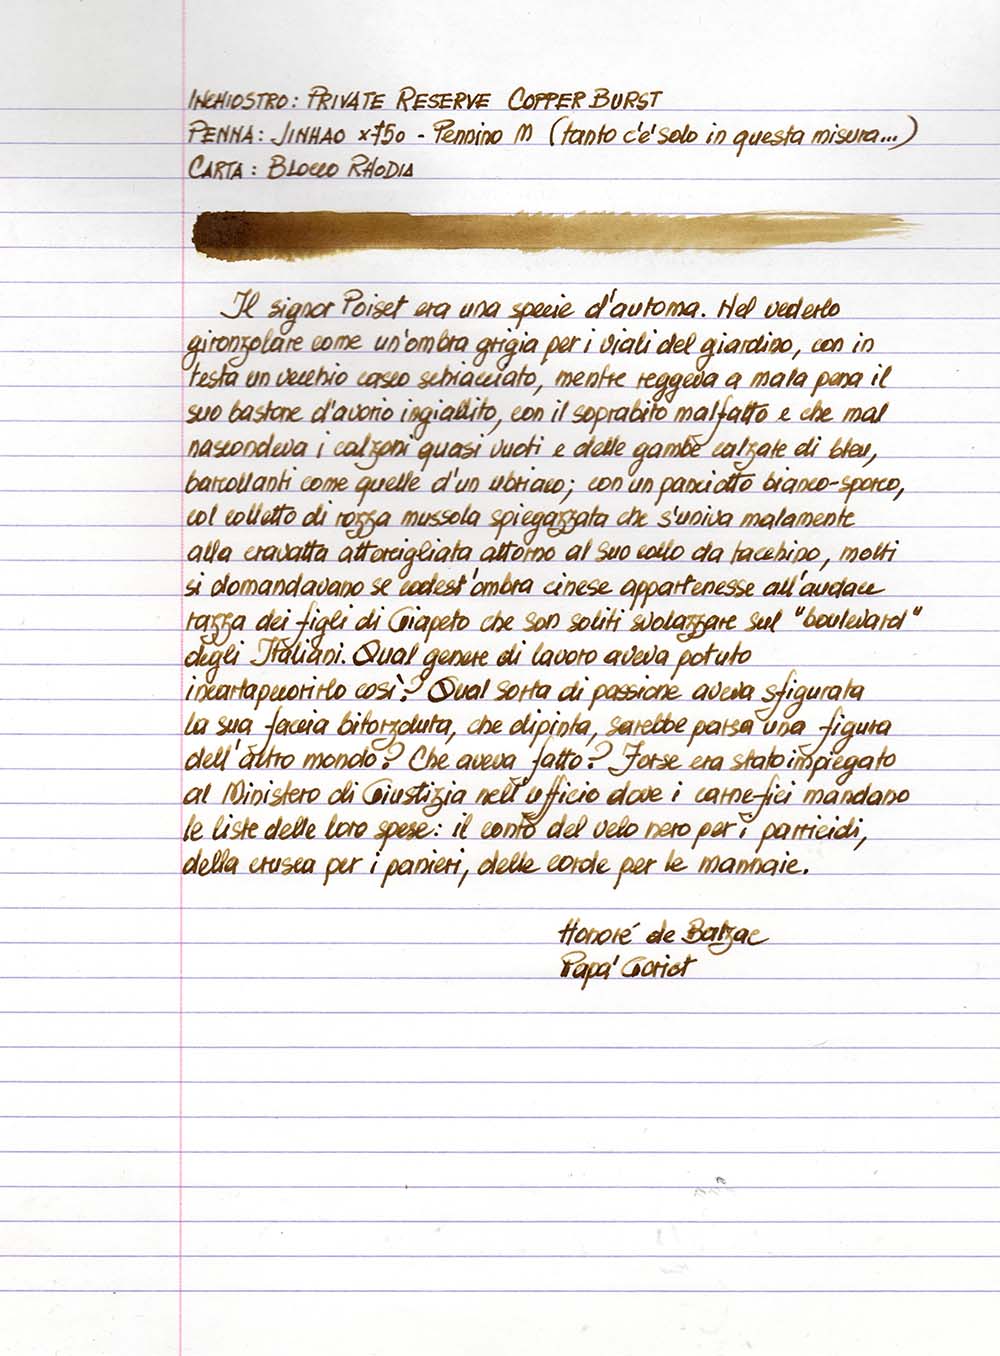 INCHIOSTRO: PRIVATE RESERVE COPPER BURST
PENNA: JINHAO x750 - Pennino M (tanto c'e' solo in questa misura...)
CARTA: BLOCCO RHODIA
Il signor Poiset era una specie d'automa. Nel vederlo
gironzolare come un'ombra grigia per i viali del giardino, con in
testa un vecchio casco schiacciato, mentre reggeva a mala pena il
suo bastone d'avorio ingiallito, con il soprabito malfatto e che mal
nascondeva i calzoni quasi vuoti e delle gambe calzate di bleu,
barcollanti come quelle d'un ubriaco; con un panciotto bianco-sporco,
col colletto di rozza mussola spiegazzata che s'univa malamente
alla cravatta attorcigliata attorno al suo collo da tacchino, molti
si domandavano se codest'ombra cinese appartenesse all'audace
razza dei figli di Giapeto che son soliti svolazzare sul "boulevard"
degli Italiani. Qual genere di lavoro aveva potuto
incartapecorirlo così? Qual sorta di passione aveva sfigurata
la sua faccia bitorzoluta, che dipinta, sarebbe parsa una figura
dell'altro mondo? Che aveva fatto? Forse era stato impiegato
al Ministero di Giustizia nell'ufficio dove i carnefici mandano
le liste delle loro spese: il conto del velo nero per i parricidi,
della crusca per i panieri, delle corde per le mannaie.
Honoré de Balzac
Papa' Goriot